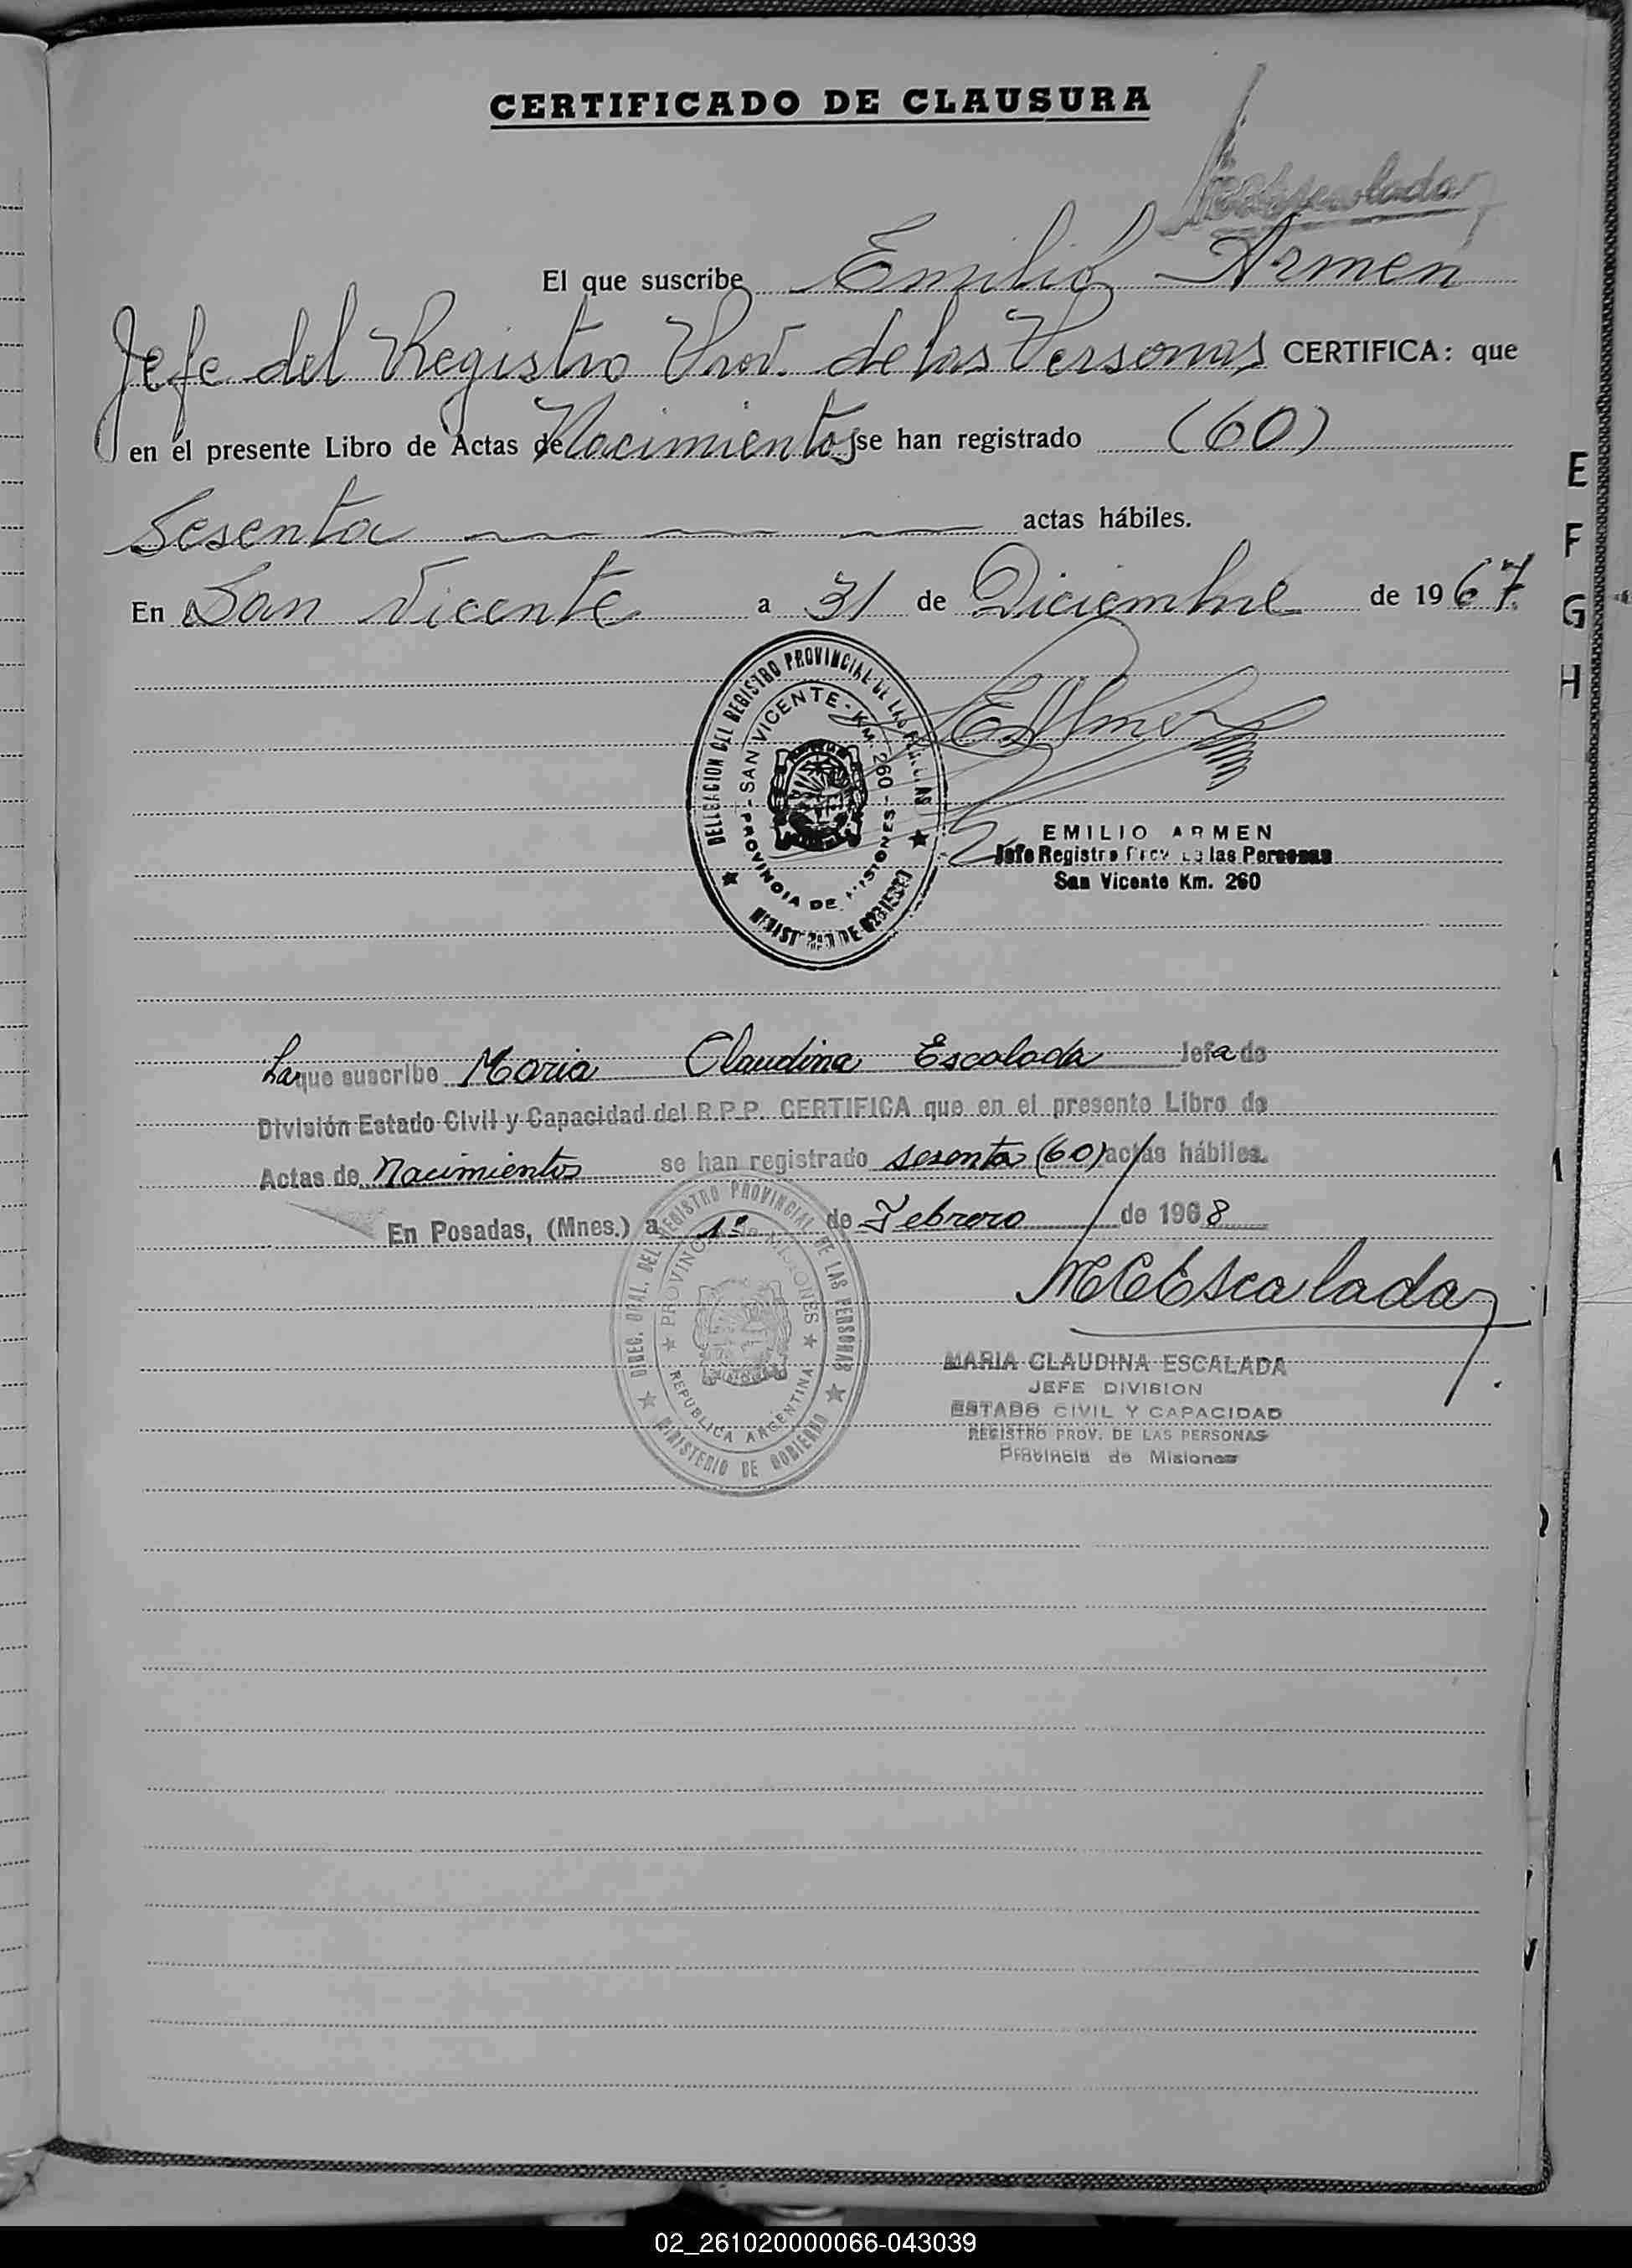 CERTIFICADO DE CLAUSURA
El que suscribe Emilio Armen
Jefe del Registro Prov. de las Personas CERTIFICA: que
en el presente Libro de Actas de Nacimientos se han registrado (60)
Sesenta actas hábiles.
En San Vicente a 31 de Diciembre de 1967
E
F
G
H
DELEGACION DEL REGISTRO PROVINCIAL DE LAS
SAN VICENTE - KM. 260 - PROVINCIA DE MISIONES
EMILIO ARMEN
Jefe Registro Prov de las Personas
San Vicente Km. 260
La que suscribe Maria Claudina Escalada Jefa de
División Estado Civil y Capacidad del R.P.P. CERTIFICA que en el presente Libro de
Actas de Nacimientos se han registrado sesenta (60) actas hábiles.
En Posadas, (Mnes.) a 1º de Febrero de 1968
MCEscalada
DIREC. GRAL. DEL REGISTRO PROVINCIAL DE LAS PERSONAS
PROVINCIA de MISIONES
REPUBLICA ARGENTINA
MINISTERIO DE GOBIERNO
MARIA CLAUDINA ESCALADA
JEFE DIVISION
ESTADO CIVIL Y CAPACIDAD
REGISTRO PROV. DE LAS PERSONAS
Provincia de Misiones
02_261020000066-043039